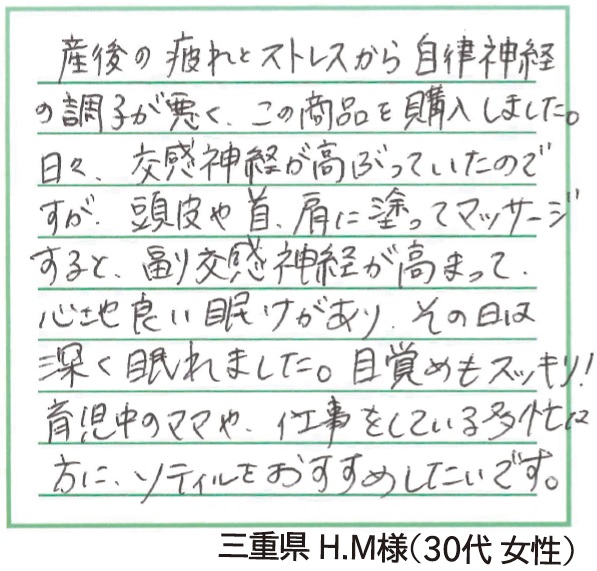 産後の疲れとストレスから自律神経
の調子が悪く、この商品を購入しました。
日々、交感神経が高ぶっていたので
すが、頭皮や首、肩に塗ってマッサージ
すると、副交感神経が高まって、
心地良い眠けがあり、その日は
深く眠れました。目覚めもスッキリ!
育児中のママや、仕事をしている多忙な
方に、ソティルをおすすめしたいです。
三重県 H.M様(30代 女性)